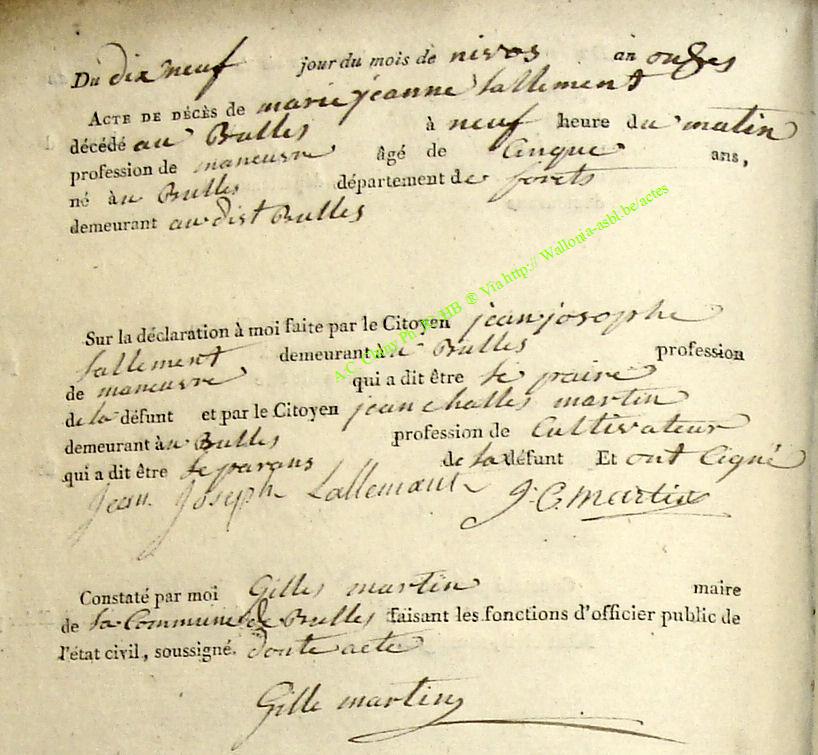 Du dix neuf jour du mois de nivos an onzes
ACTE DE DÉCÈS de marie jeanne Lallement
décédé au Bulles à neuf heure du matin
profession de maneuvre âgé de Cinque ans,
né àu Bulles département de forets
demeurant au dist Bulles
Sur la déclaration à moi faite par le Citoyen jean josephe
Lallement demeurant àu Bulles profession
de maneuvre qui a dit être le paire
de la défunt et par le Citoyen jean challes martin
demeurant àu Bulles profession de Cultivateur
qui a dit être le parans de la défunt Et ont Cigné
Jean Joseph Lallemant J. C. martin
Constaté par moi Gilles martin maire
de la Commune de Bulles faisant les fonctions d'officier public de
l'état civil, soussigné. donte acte
Gille martin
A.C. Chiny Photo HB ® Via http:// Wallonia-asbl.be/actes